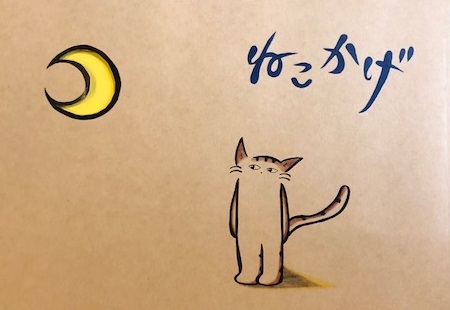 ねこかげ